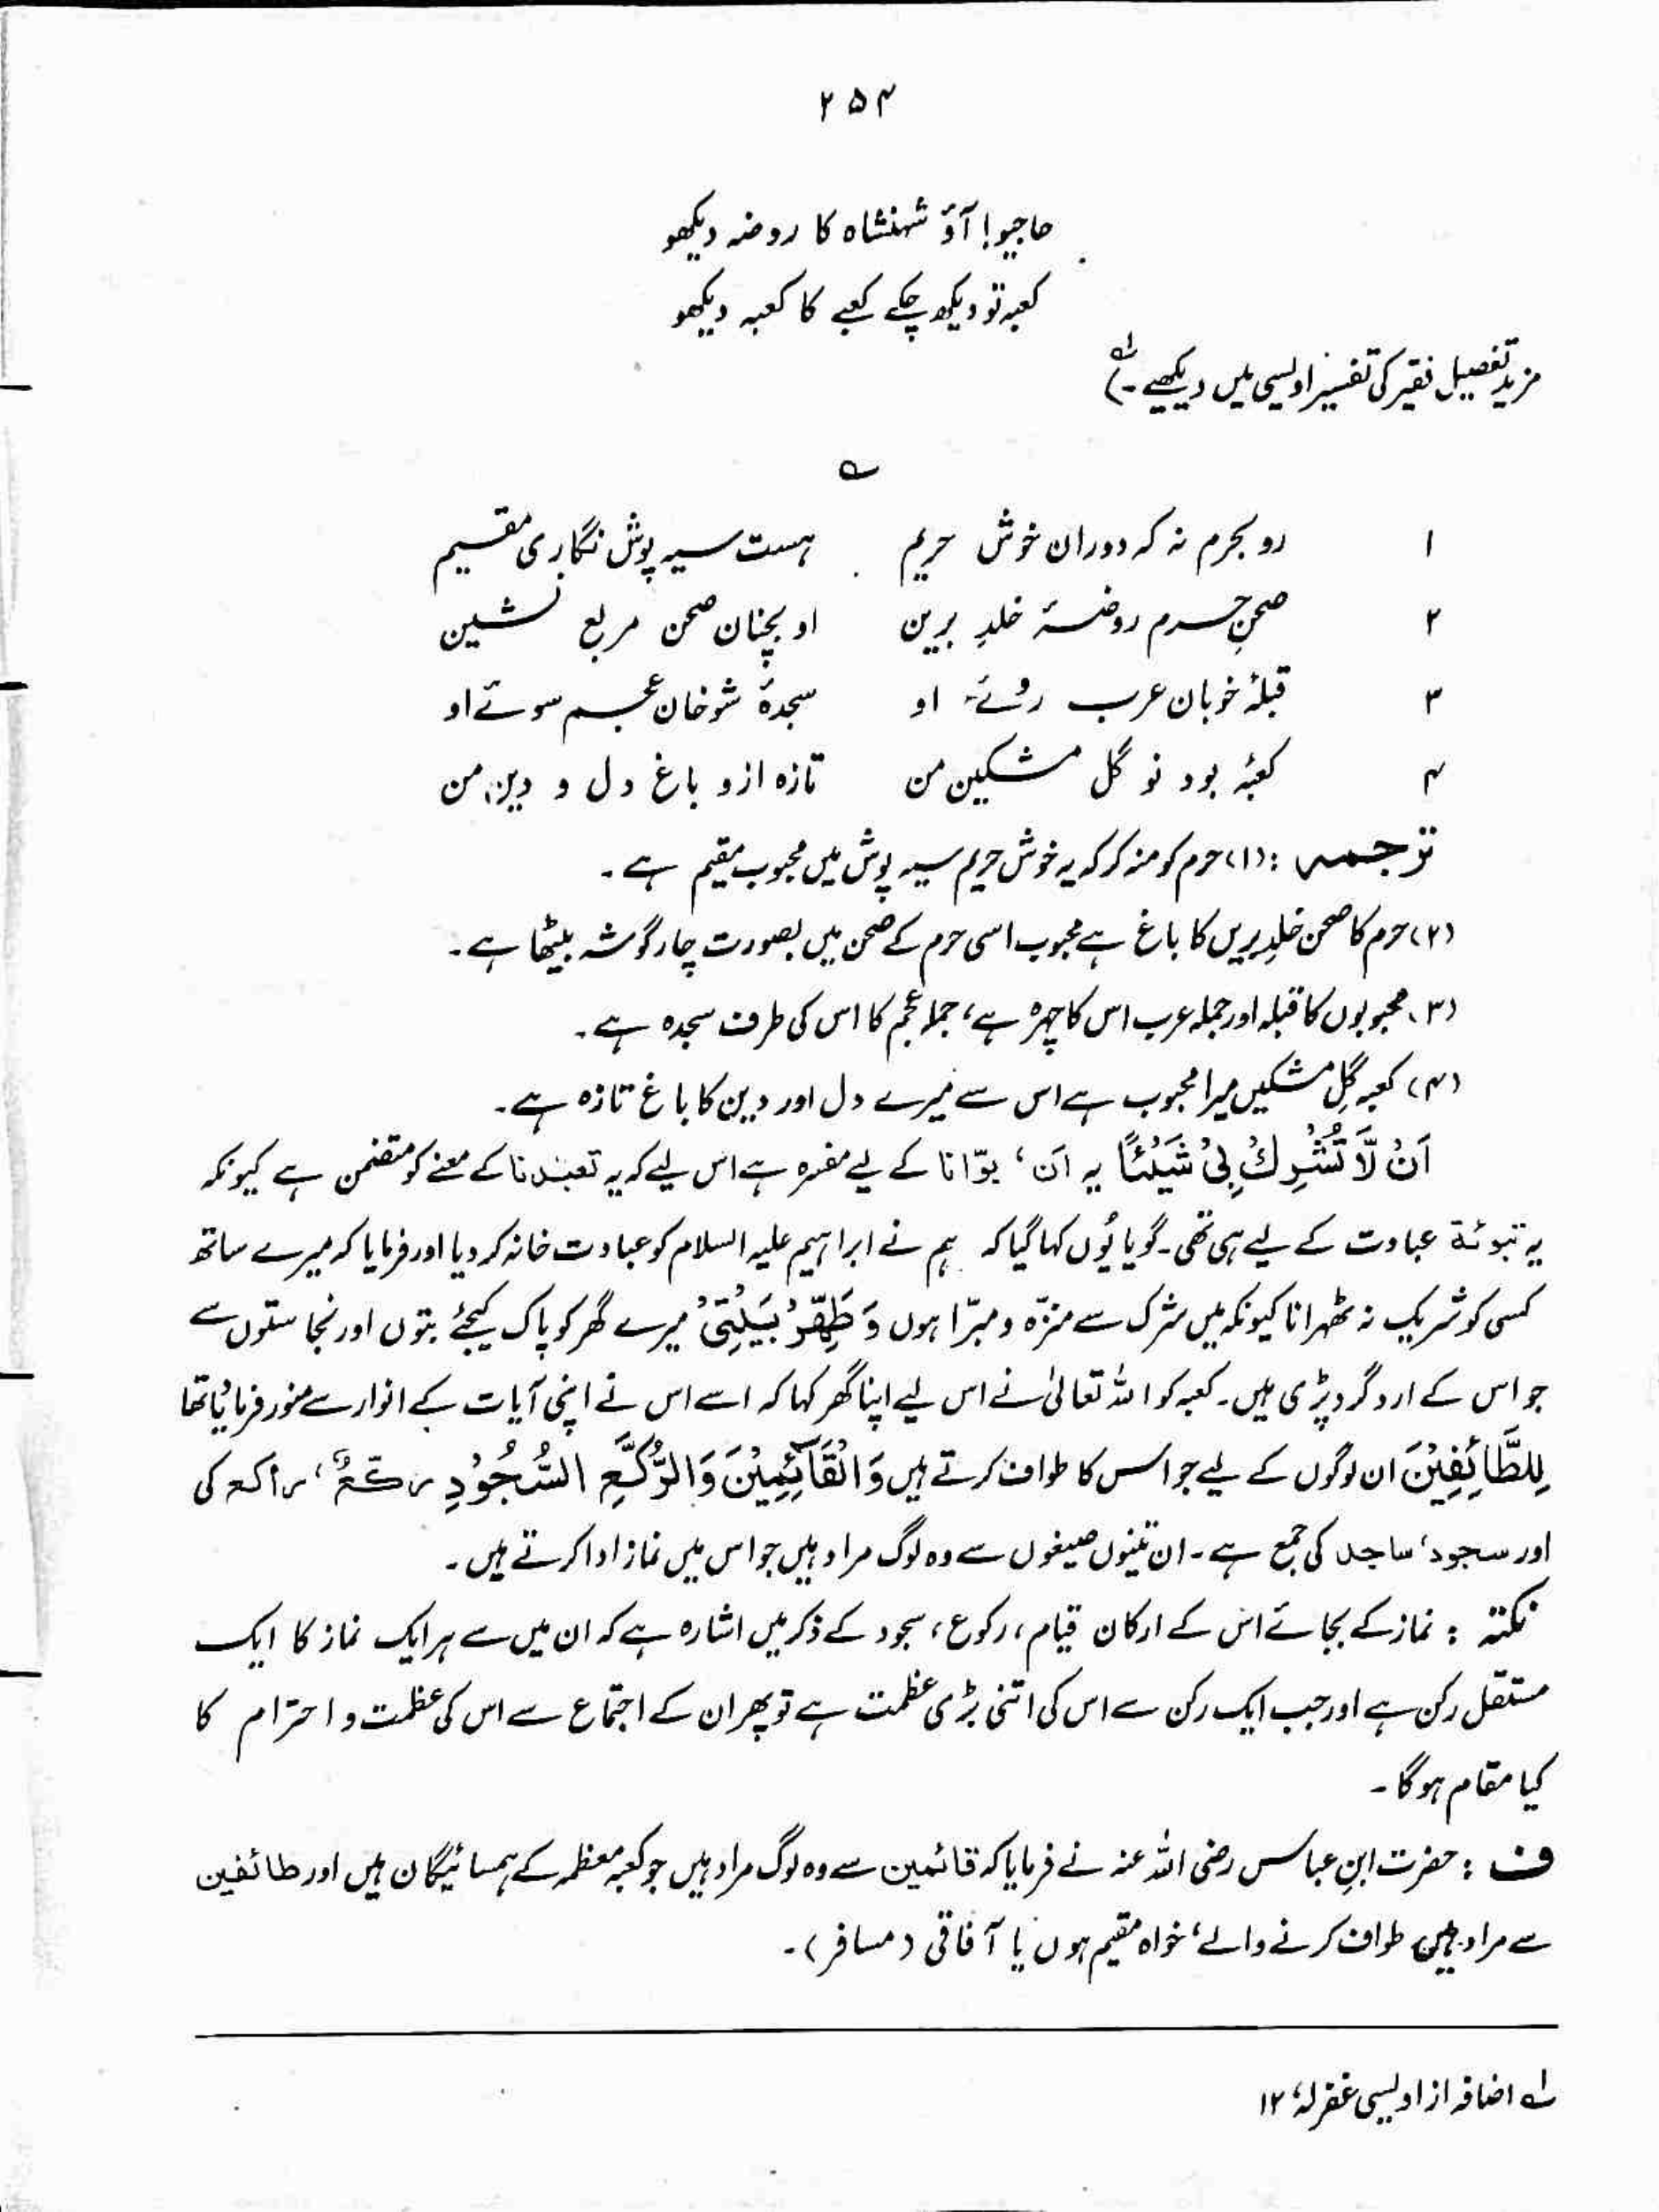 ۲۵۴
حاجیو! آؤ شہنشاہ کا روضہ دیکھو
کعبہ تو دیکھ چکے کعبے کا کعبہ دیکھو
مزید تفصیل فقیر کی تفسیر اویسی میں دیکھیے۔) لہ
؎
۱ رو بحرم نہ کہ دوران خوش حریم ہست سیہ پوش نگاری مقیم
۲ صحنِ حرم روضۂ خلدِ برین او بچنان صحن مربع نشین
۳ قبلۂ خوبان عرب روئے او سجدۂ شوخان عجم سوئے او
۴ کعبۂ بود نو گل مشکین من تازہ ازو باغ دل و دین من
ترجمہ : (۱) حرم کو منہ کر کہ یہ خوش حریم سیہ پوش میں محبوب مقیم ہے۔
(۲) حرم کا صحن خلدِ بریں کا باغ ہے محبوب اسی حرم کے صحن میں بصورت چار گوشہ بیٹھا ہے۔
(۳) محبوبوں کا قبلہ اور جملہ عرب اس کا چہرہ ہے، جملہ عجم کا اس کی طرف سجدہ ہے۔
(۴) کعبہ گلِ مشکیں میرا محبوب ہے اس سے میرے دل اور دین کا باغ تازہ ہے۔
اَنْ لَّا تُشْرِكْ بِیْ شَیْئًا یہ اَن، بوّانا کے لیے مفسرہ ہے اس لیے کہ یہ تعبدنا کے معنے کو متضمن ہے کیونکہ
یہ تبوئۃ عبادت کے لیے ہی تھی۔ گویا یُوں کہا گیا کہ ہم نے ابراہیم علیہ السلام کو عبادت خانہ کر دیا اور فرمایا کہ میرے ساتھ
کسی کو شریک نہ ٹھہرانا کیونکہ میں شرک سے منزّہ و مبرّا ہوں وَ طَهِّرْ بَیْتِیَ میرے گھر کو پاک کیجئے بتوں اور نجاستوں سے
جو اس کے ارد گرد پڑی ہیں۔ کعبہ کو اللہ تعالیٰ نے اس لیے اپنا گھر کہا کہ اسے اس نے اپنی آیات کے انوار سے منور فرمایا تھا
لِلطَّآئِفِیْنَ ان لوگوں کے لیے جو اس کا طواف کرتے ہیں وَ الْقَآئِمِیْنَ وَ الرُّكَّعِ السُّجُوْدِ رکّع، راکع کی
اور سجود، ساجد کی جمع ہے۔ ان تینوں صیغوں سے وہ لوگ مراد ہیں جو اس میں نماز ادا کرتے ہیں۔
نکتہ : نماز کے بجائے اس کے ارکان قیام، رکوع، سجود کے ذکر میں اشارہ ہے کہ ان میں سے ہر ایک نماز کا ایک
مستقل رکن ہے اور جب ایک رکن سے اس کی اتنی بڑی عظمت ہے تو پھر ان کے اجتماع سے اس کی عظمت و احترام کا
کیا مقام ہوگا۔
ف : حضرت ابنِ عباس رضی اللہ عنہ نے فرمایا کہ قائمین سے وہ لوگ مراد ہیں جو کعبہ معظمہ کے ہمسائیگان ہیں اور طائفین
سے مراد ہیں طواف کرنے والے، خواہ مقیم ہوں یا آفاقی (مسافر)۔
لہ اضافہ از اویسی غفرلہٗ ۱۲